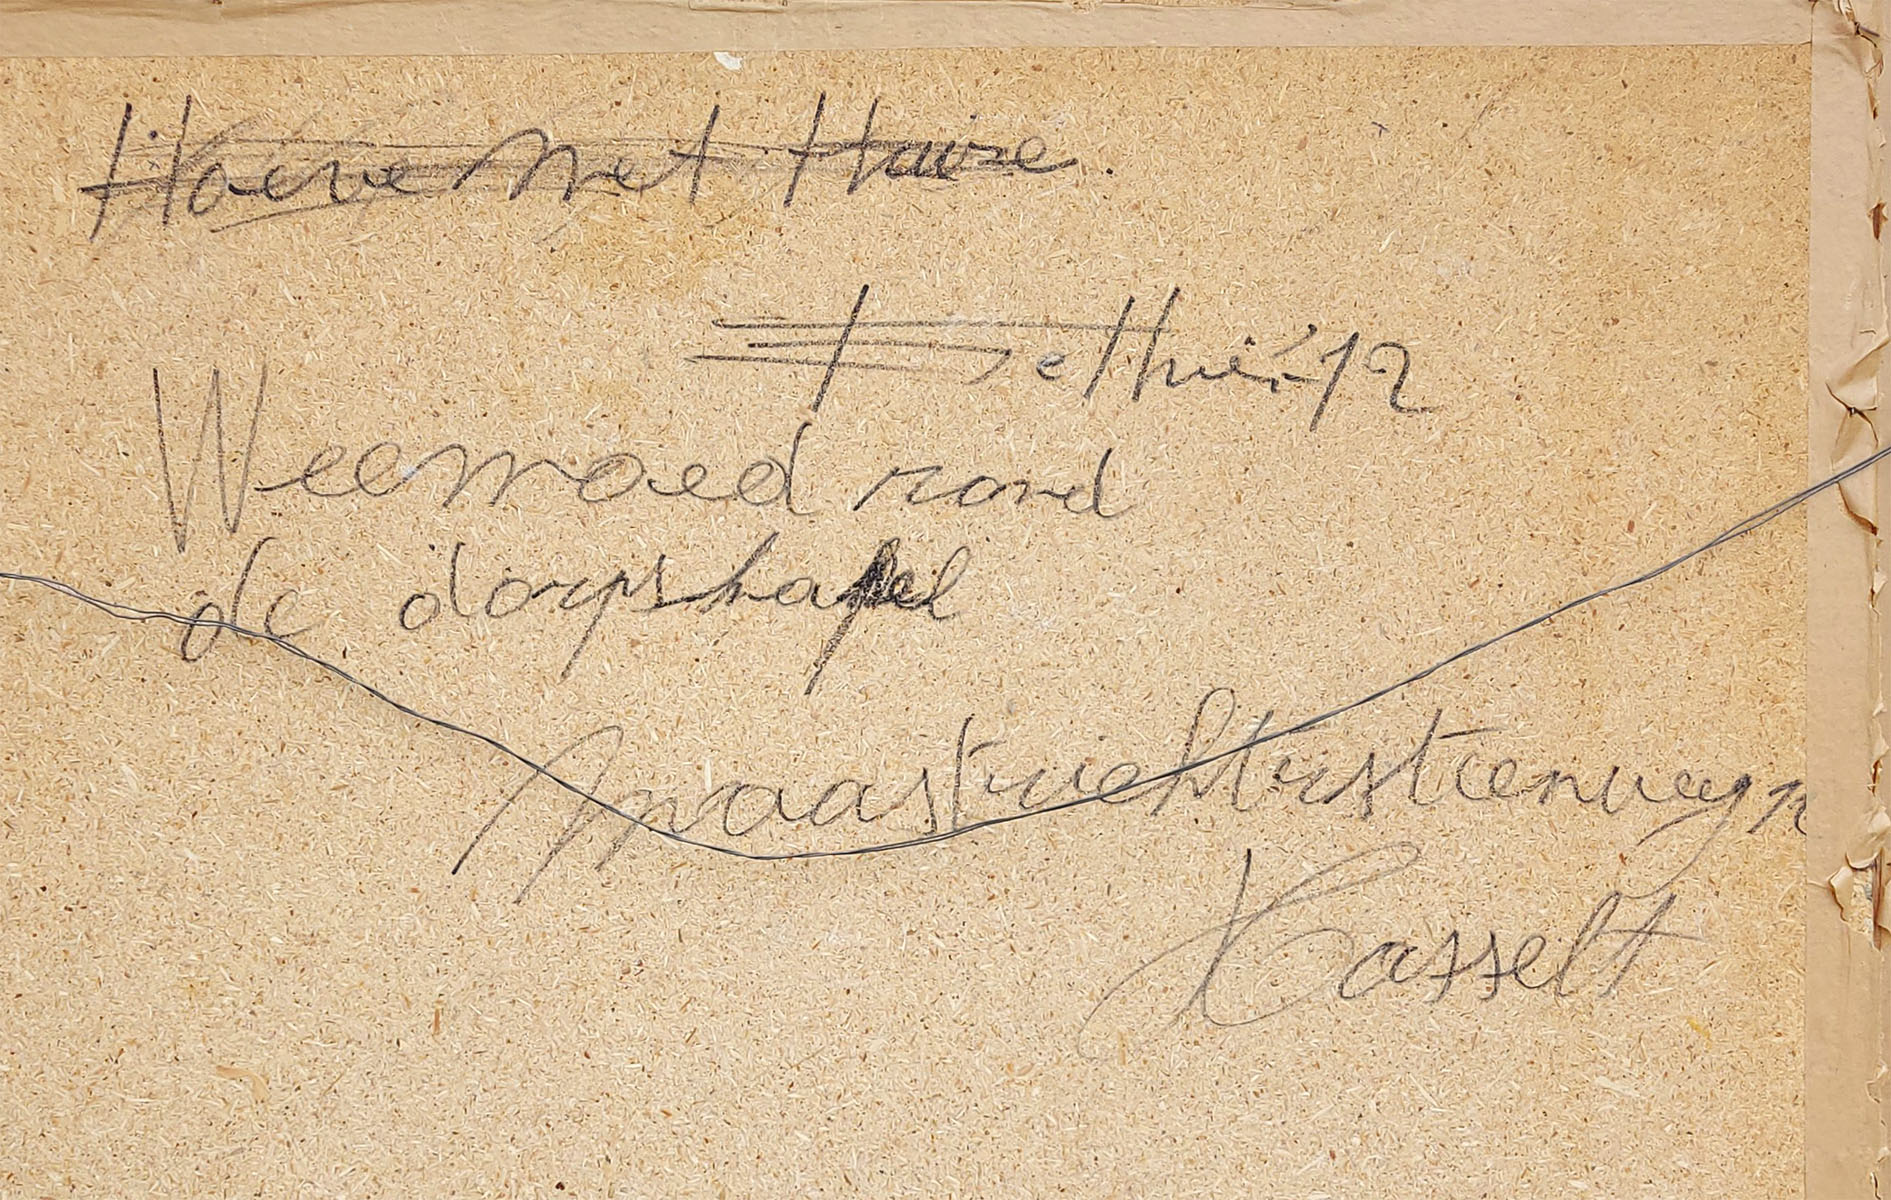 Hoeve met
Weemoed rond
de dorpskapel
Maastrichtersteenweg
Hasselt